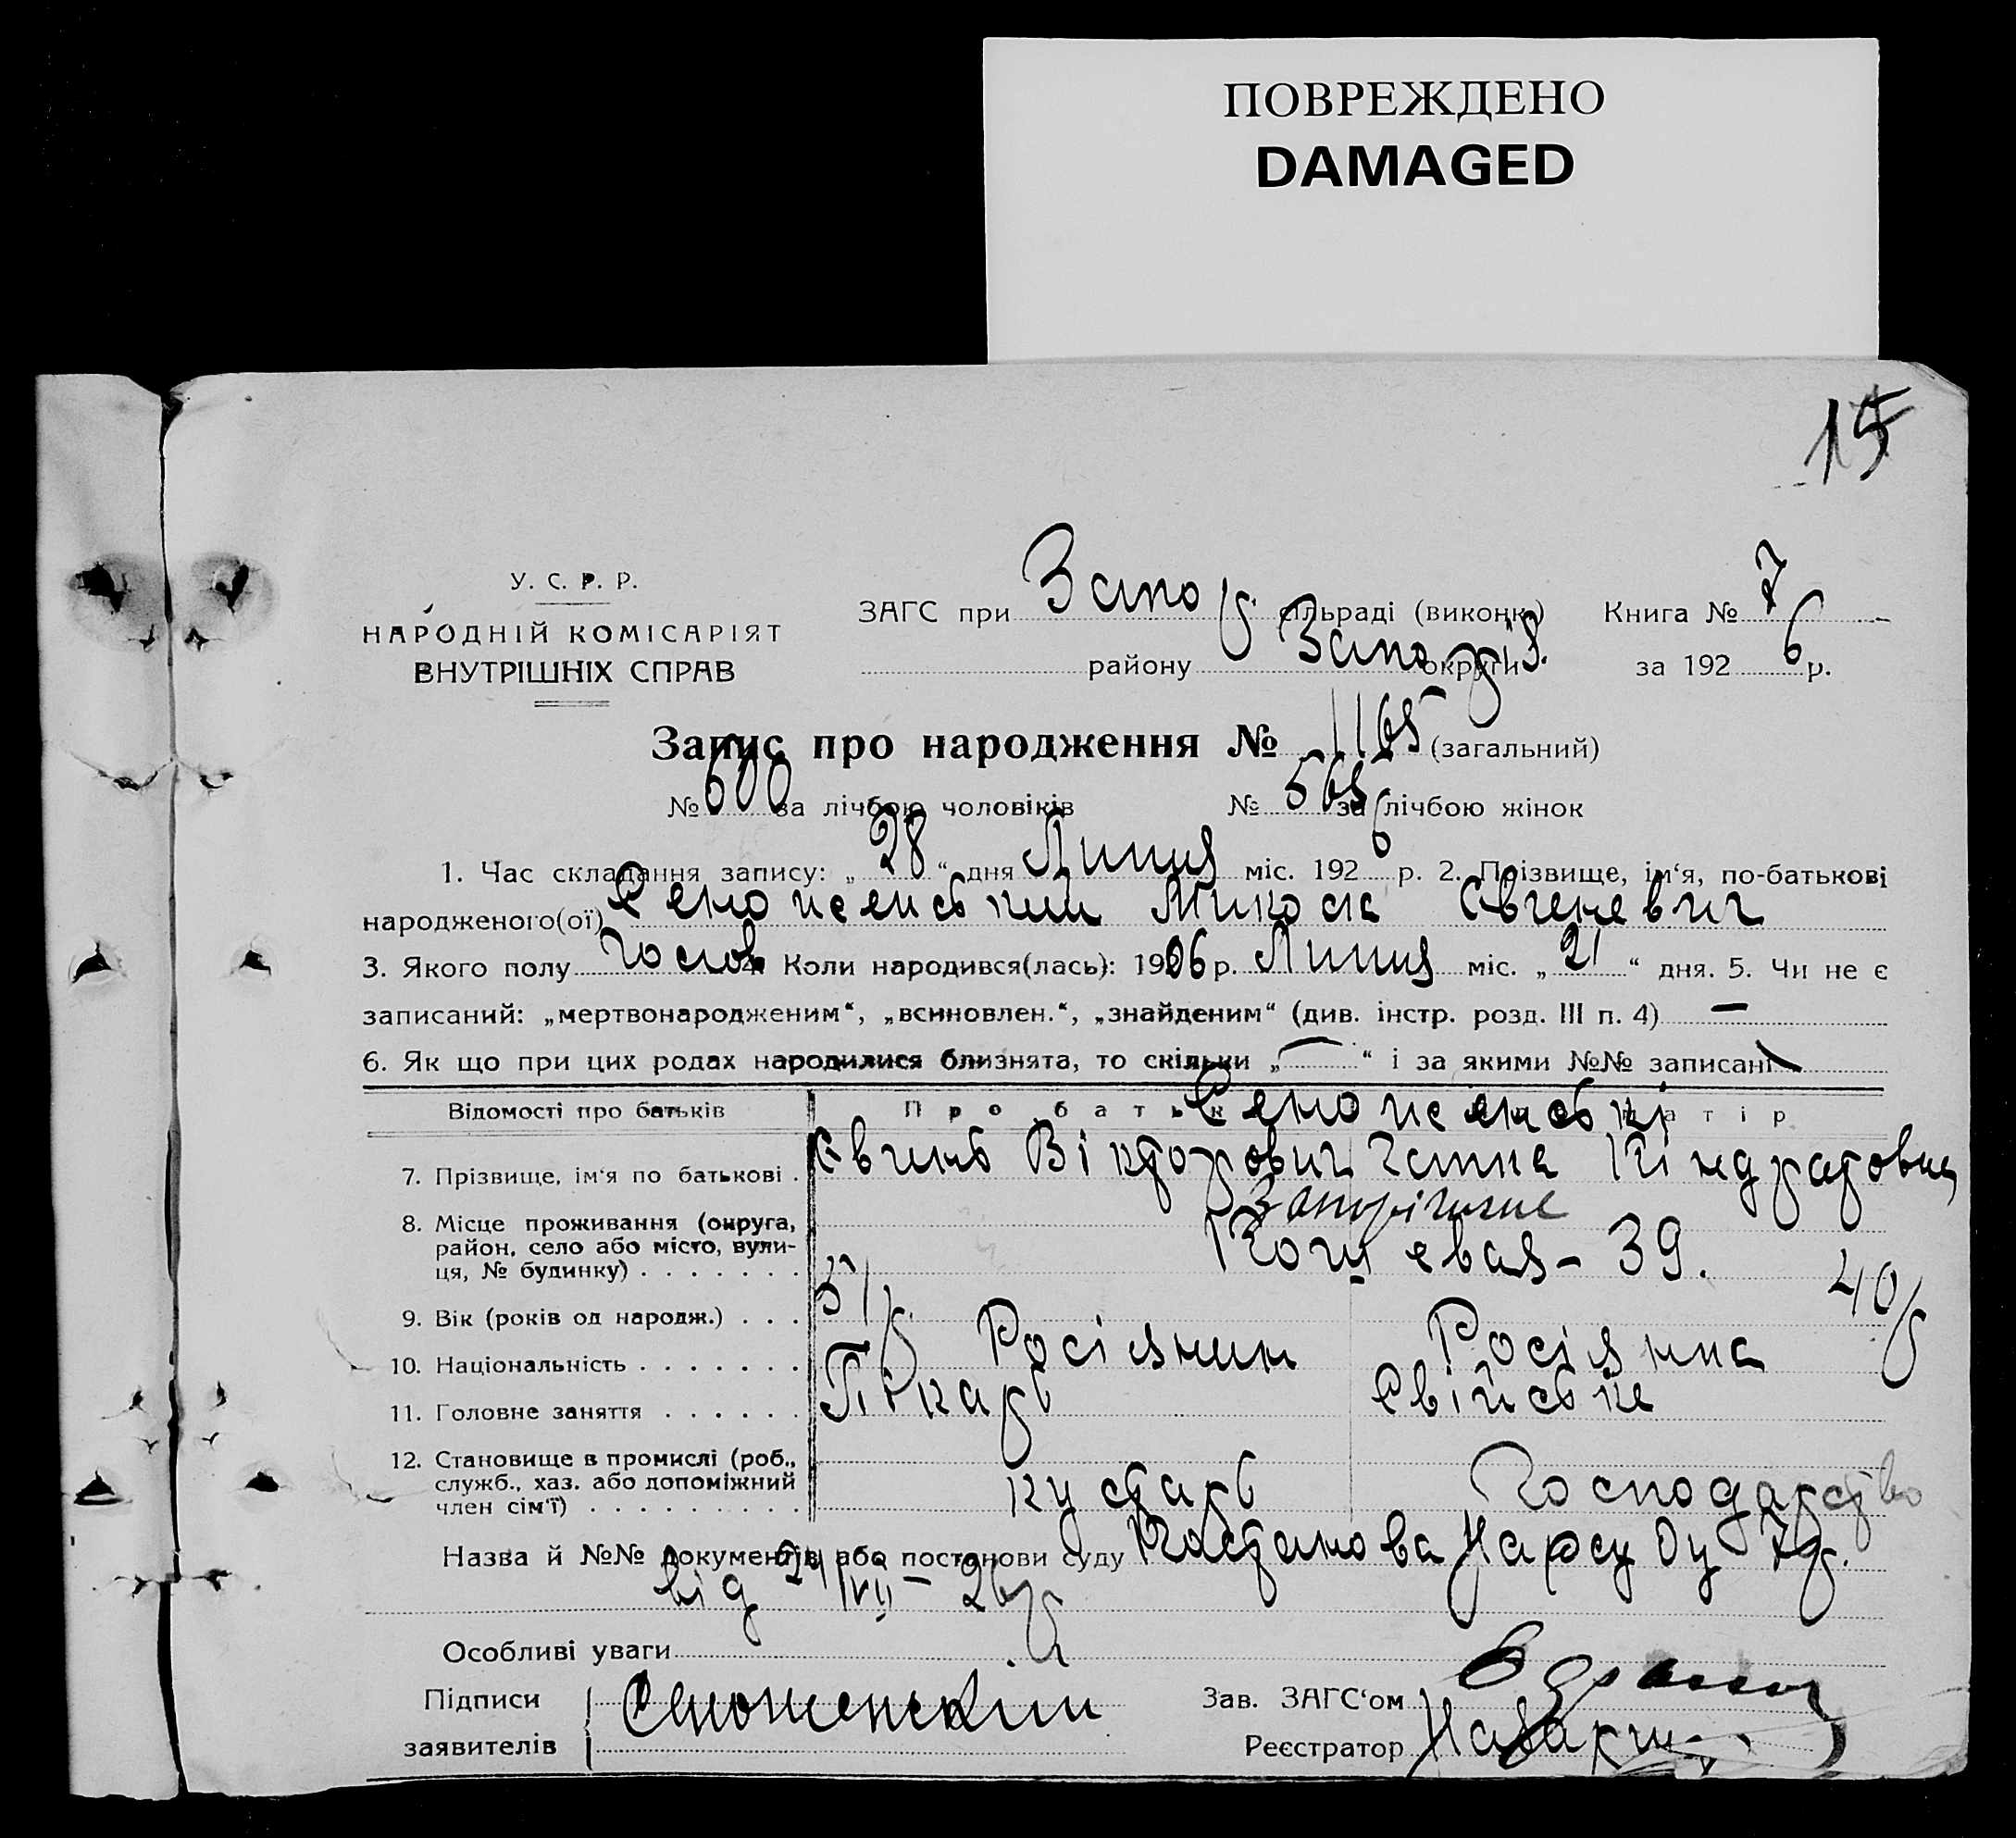 ПОВРЕЖДЕНО
DAMAGED
15
У. С. Р. Р.
НАРОДНІЙ КОМІСАРІЯТ
ВНУТРІШНІХ СПРАВ
ЗАГС при Запор. сільраді (виконк.) Книга № 7
району Запор округи за 1926 р.
Запис про народження № 1165 (загальний)
№ 600 за лічбою чоловіків № 565 за лічбою жінок
1. Час складання запису: „28“ дня Липня міс. 1926 р. 2. Прізвище, ім‘я, по-батькові
народженого(ої) Миколa Євгеневич
3. Якого полу чолов 4. Коли народився(лась): 1906 р. Липня міс. „21“ дня. 5. Чи не є
записаний: „мертвонародженим“, „всиновлен.“, „знайденим“ (див. інстр. розд. III п. 4) —
6. Як що при цих родах народилися близнята, то скільки „—“ і за якими №№ записані
Відомості про батьків Про батька матір
7. Прізвище, ім‘я по батькові . Євгень Вікторович Ганна Кіндратовна
8. Місце проживання (округа, Запоріжжє
район, село або місто, вули-
ця, № будинку) . . . . . . . Кощевая – 39.
9. Вік (років од народж.) . . . 51 р. 40 р
10. Національність . . . . . . . Росіянин Росіянка
11. Головне заняття . . . . . . Пекарь Свійське
12. Становище в промислі (роб.,
служб., хаз. або допоміжний
член сім‘ї) . . . . . . . . . кустарь Господарство
Назва й №№ документів або постанови суду Постанова Нарсуду 7 д.
від 24/VII – 26 р
Особливі уваги
Підписи
заявителів
Зав. ЗАГС‘ом
Реєстратор